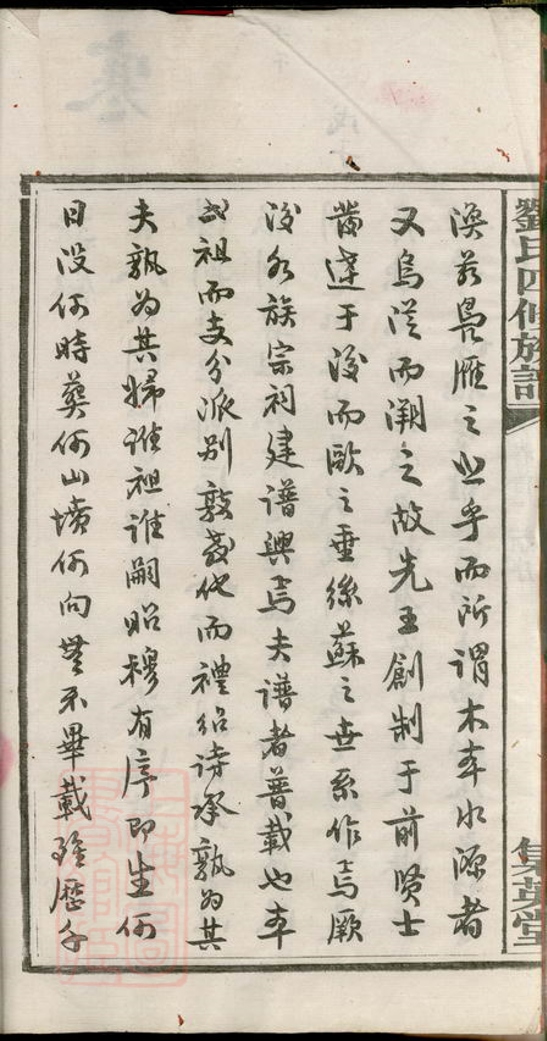 劉氏四修族譜
集英堂
渙若鳧雁之止乎而所謂木本水源者
又烏從而溯之故先王創制于前賢士
啚述于後而歐之垂絲蘇之世系作焉厥
後如族宗祠建譜興焉夫譜者普載也本
此祖而支分派別敦敘他而禮紹詩承孰為其
夫孰為其婦誰祖誰嗣昭穆有序即生何
日沒何時葬何山墳何向無不畢載雖歷千